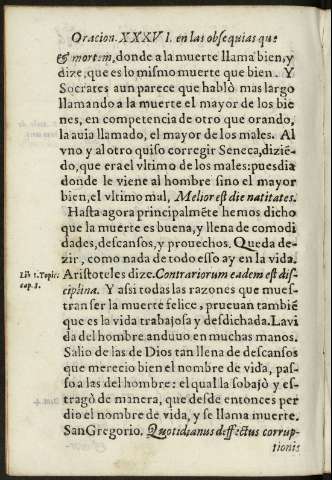 Oracion. XXXVI. en las obsequias que
& mortem, donde a la muerte llama bien, y
dize, que es lo mismo muerte que bien. Y
Socrates aun parece que hablò mas largo
llamando a la muerte el mayor de los bie
nes, en competencia de otro que orando,
la auia llamado, el mayor de los males. Al
vno y al otro quiso corregir Seneca, diziẽ-
do, que era el vltimo de los males: pues dia
donde le viene al hombre sino el mayor
bien, el vltimo mal, Melior est die natitates.
Hasta agora principalmẽte hemos dicho
que la muerte es buena, y llena de comodi
dades, descansos, y prouechos. Queda de-
zir, como nada de todo esso ay en la vida.
Lib. 1. Topic. cap. 8.
Aristoteles dize. Contrariorum eadem est dis-
ciplina. Y assi todas las razones que mues-
tran ser la muerte felice, prueuan tambiẽ
que es la vida trabajosa y desdichada. La vi
da del hombre anduuo en muchas manos.
Salio de las de Dios tan llena de descansos
que merecio bien el nombre de vida, pas-
so a las del hombre: el qual la sobajò y es-
tragò de manera, que desde entonces per
dio el nombre de vida, y se llama muerte.
San Gregorio. Quotidianus deffectus corrup-
tionis